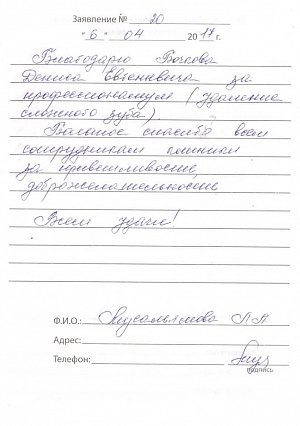 Заявление № 20
"6" 04 2017 г.
Благодарю Бочкова
Дениса Евгеневича за
профессионализм (удаление
сложного зуба).
Большое спасибо всем
сотрудникам клиники
за приветливость,
доброжелательность
Всем удачи!
Ф.И.О.: Мусальямова Л А
Адрес:
Телефон:
подпись